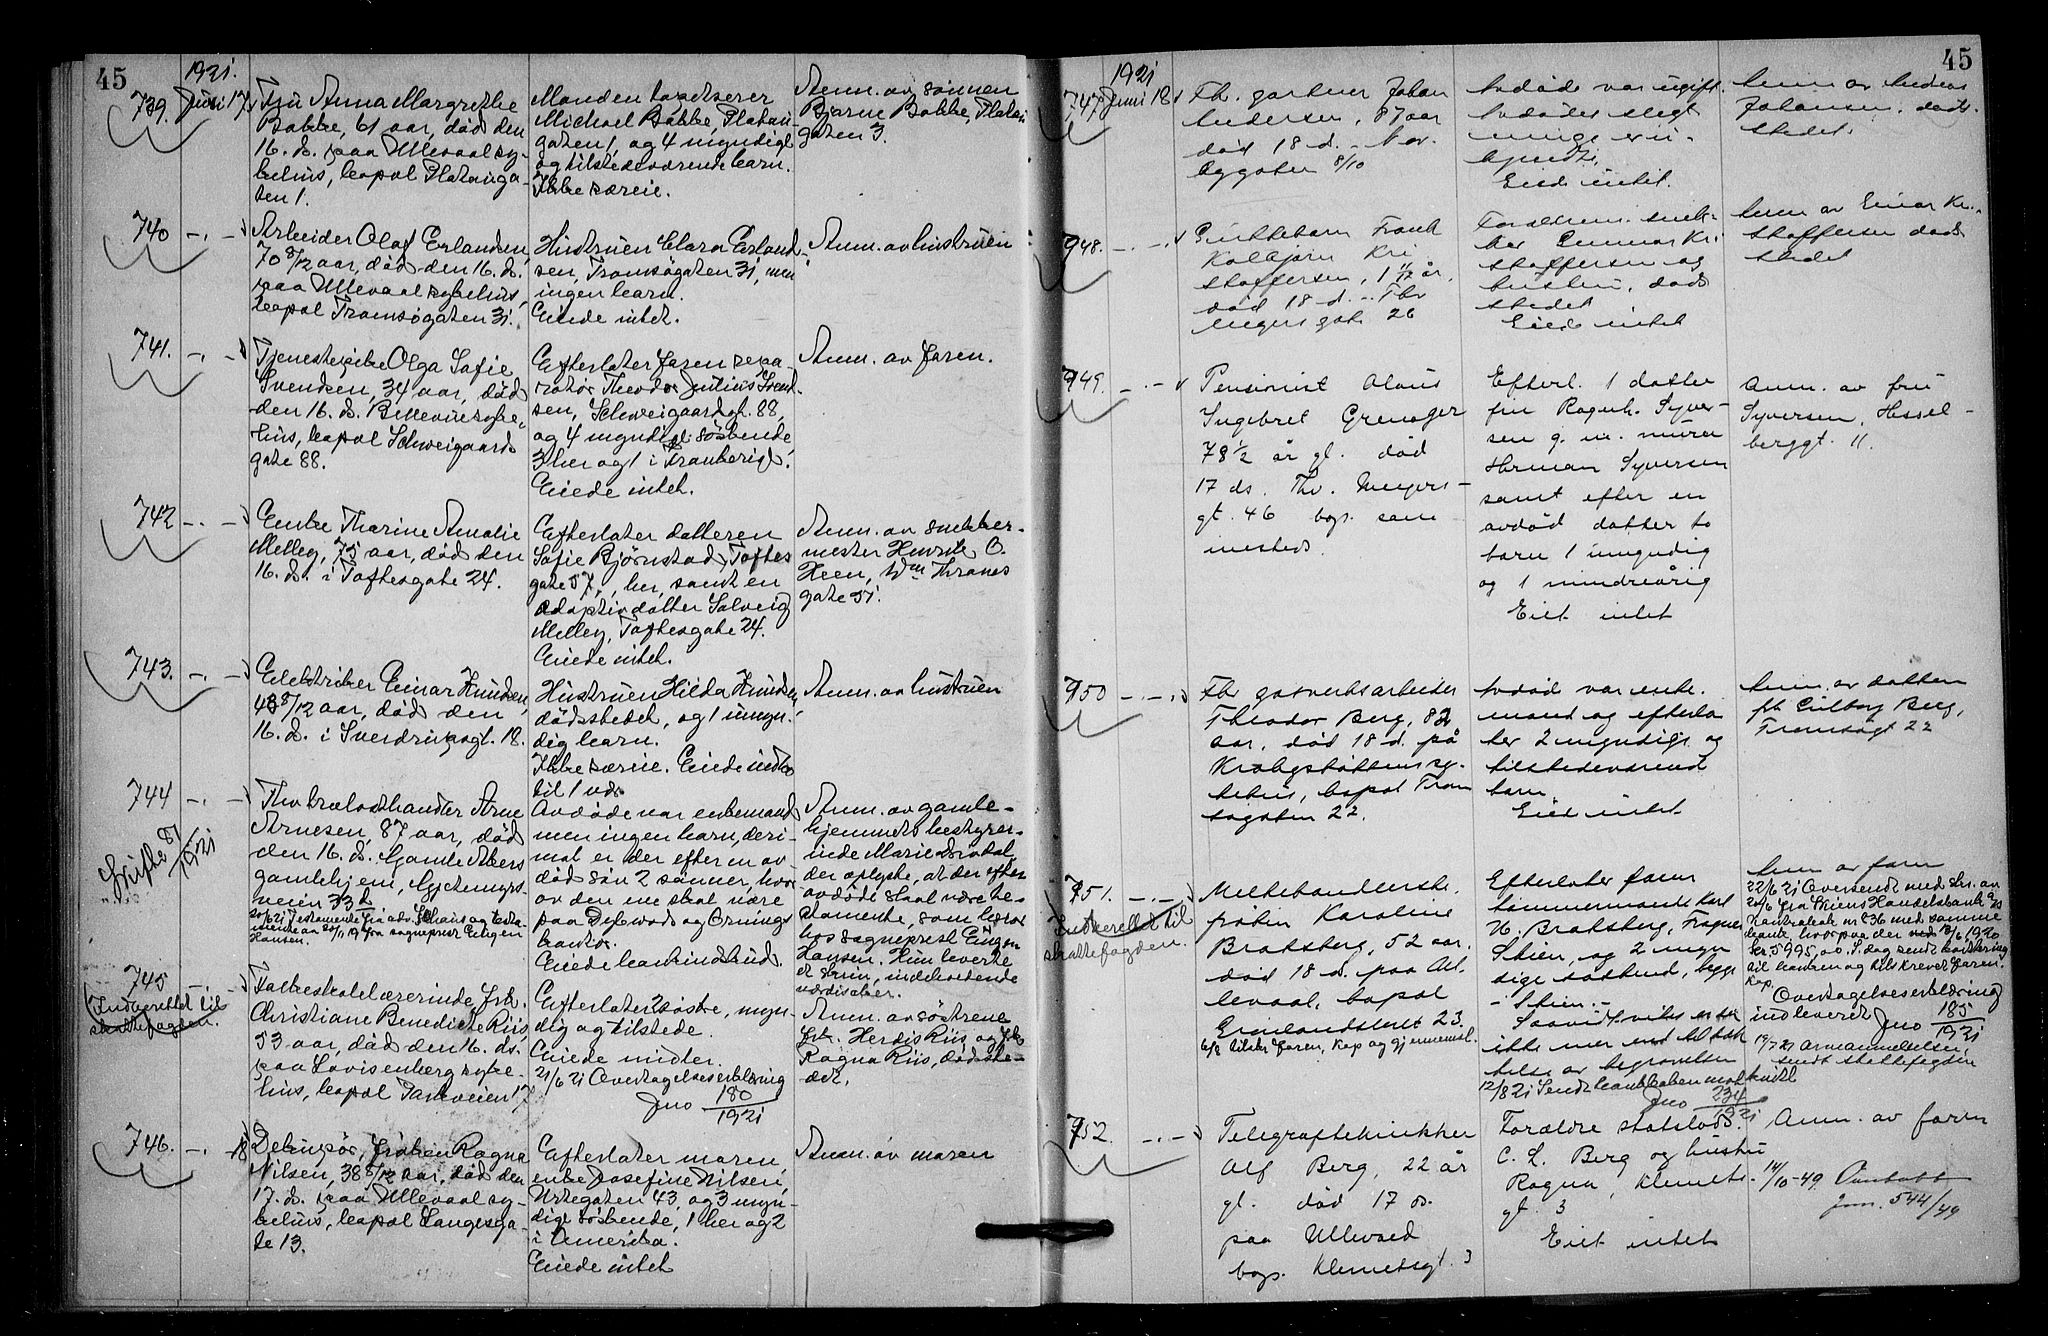 45
1921.
739. Juni 17.
Fru Anna Margrethe
Babbe, 61 aar, død den
16. ds. paa Ullevaal sy-
kehus, bopæl Platanga-
ten 1.
Manden taxtserer
Michael Babbe, Platan-
gaten 1, og 4 myndige
og tilstedeværende barn.
Ikke særeie.
Anm. av sønnen
Bjarne Babbe, Platan-
gaten 3.
740 -.-
Arbeider Olaf Erlandsen,
70 8/12 aar, død den 16. ds.
paa Ullevaal sykehus,
bopæl Tromsøgaten 31.
Hustruen Clara Erland-
sen, Tromsøgaten 31, men
ingen barn.
Eiede intet.
Anm. av hustruen
741. -.-
Tjenestepike Olga Sofie
Svendsen, 34 aar, død
den 16. ds. Bellevue syke-
hus, bopæl Schweigaards
gate 88.
Efterlater faren repa-
ratør Theodor Julius Svend-
sen, Schweigaardsgt. 88,
og 4 myndige søskende,
3 her og 1 i Frankerige.
Eiede intet.
Anm. av faren.
742 -.-
Enke Tharine Amalie
Melleg, 75 aar, død den
16. ds. i Toftesgate 24.
Efterlater datteren
Sofie Bjørnstad, Toftes
gate 57, her, samt en
adoptivdatter Solveig
Melleg, Toftesgate 24.
Eiede intet.
Anm. av snekker-
mester Henrik O.
Heen, Wm Thranes
gate 51.
743. -.-
Elektriker Einar Knudsen,
43 8/12 aar, død den
16. ds. i Sverdrupsgt. 18.
Hustruen Hilda Knudsen
dødsstedet, og 1 umyn-
dig barn.
Ikke særeie. Eiede indbo
til 1 vær.
Anm. av hustruen
744 -.-
Skifte 81/1921
Fhv trælasthandler Arne
Arnesen, 87 aar, død
den 16. ds. Gamle Akers
gamlehjem, Gjetemyrs-
veien 33
20/6 21 Testamente fra adv. Schaus og testa-
mente av 20/11 19 fra sogneprest Eugen
Hansen.
Avdøde var enkemand
men ingen barn, deri-
mot er der efter en av
død søn 2 sønner, hvor
av den ene skal være
paa Dybwads og Grünings
kontor.
Eiede bankindskud.
Anm. av gamle-
hjemmets bestyrer-
inde Marie
der oplyste, at der efter
avdøde skal være te-
stamente, som beror
hos sogneprest Eugen
Hansen. Hun leverte
et skrin, indeholdende
værdisaker.
745 -.-
Indberettet til
skattefogden.
Folkeskolelærerinde frk.
Christiane Benedicte Riis,
53 aar, død den 16. ds.
paa Lovisenberg syke-
hus, bopæl Parkveien 17
Efterlater 2 søstre, myn-
dig og tilstede.
Eiede midler.
21/6 21 Overtagelseserklæring
Jno 180/1921
Anm. av søstrene
frk. Herdis Riis og frk.
Ragna Riis, dødsste-
det.
746. -.- 18
Delingsør, frøken Ragna
Nilsen, 38 8/12 aar, død den
17. ds. paa Ullevaal sy-
kehus, bopæl Langesga-
te 13.
Efterlater moren,
enke Josefine Nilsen,
Urtegaten 43, og 3 myn-
dige søskende, 1 her og 2
i Amerika.
Eiede intet
Anm. av moren
45
1921
747 Juni 18
Fh. gartner Johan
Andersen, 87 aar
død 18 d. -
Byggaten 8/10
Avdøde var ugift.
Avdødes slegt
Eiede intet.
Anm. av Anders
Johansen, døds-
stedet.
748. -.-
Guttebarn Frank
Kolbjørn Kri
stoffersen, 1 11/12 år,
død 18 d. - Thv
Meyers gate 26
Forældrene snek-
ker Gunnar Kri
stoffersen og
hustru, døds
stedet
Eiede intet
Anm av Einar Kri-
stoffersen døds
stedet
749. -.-
Pensionist Olaus
Ingebret Grenager
78 1/2 år gl. død
17 ds. Thv. Meyers-
gt. 46 bop. sam
mesteds.
Efterl. 1 datter
fru Ragnh. Syver-
sen g. m. murer
Herman Syversen
samt efter en
avdød datter to
barn 1 umyndig
og 1 mindreårig
Eiet intet
Anm. av fru
Syversen, Hessel-
berggt. 11.
750 -.-
Fhv gasverksarbeider
Theodor Berg, 82
aar, død 18 d. på
Krohgstøttens sy-
kehus, bopæl Trom
søgaten 22.
Avdød var enke-
mand og efterla
ter 2 myndige og
tilstedeværende
barn
Eiede intet.
Anm. av datteren
frk Eilborg Berg,
Tromsøgt 22
751. -.-
Indberettet til
skattefogden.
Melkehandlerske
frøken Karoline
Bratsberg, 52 aar,
død 18 d. paa Ul-
levaal, bopæl
Grønlandsleret 23.
Efterlater faren
tømmermand Karl
H. Bratsberg,
Skien, og 2 myn
dige søskend, begge
- Skien. -
Saavidt vites er der
ikke mer end til dæk
kelse av begravelsen
12/8 21 Sendt bankboken mot kvitt
Jno 234/1921
Anm av faren
22/6 21 Oversendt med skr. av
20/6 fra Skiens Handelsbank A/S
Kontrabok nr 836 med samme
bank hvorpaa der 18/6 1920
kr. 5995,00. S.dag sendt kvittering
til banken og tilskrevet faren.
Kop.
Overtagelseserklæring
indleveret Jno 185/1921
19/7 21
sendt skattefogden
752. -.-
Telegraftekniker
Alf Berg, 22 år
gl. død 17 ds.
paa Ullevaal
bop. Klemetsgt. 3
Forældre statslods.
C. L. Berg og hustru
Ragna, Klemets-
gt. 3
Eiet intet
Anm. av faren
14/10-49
Jnr. 544/49